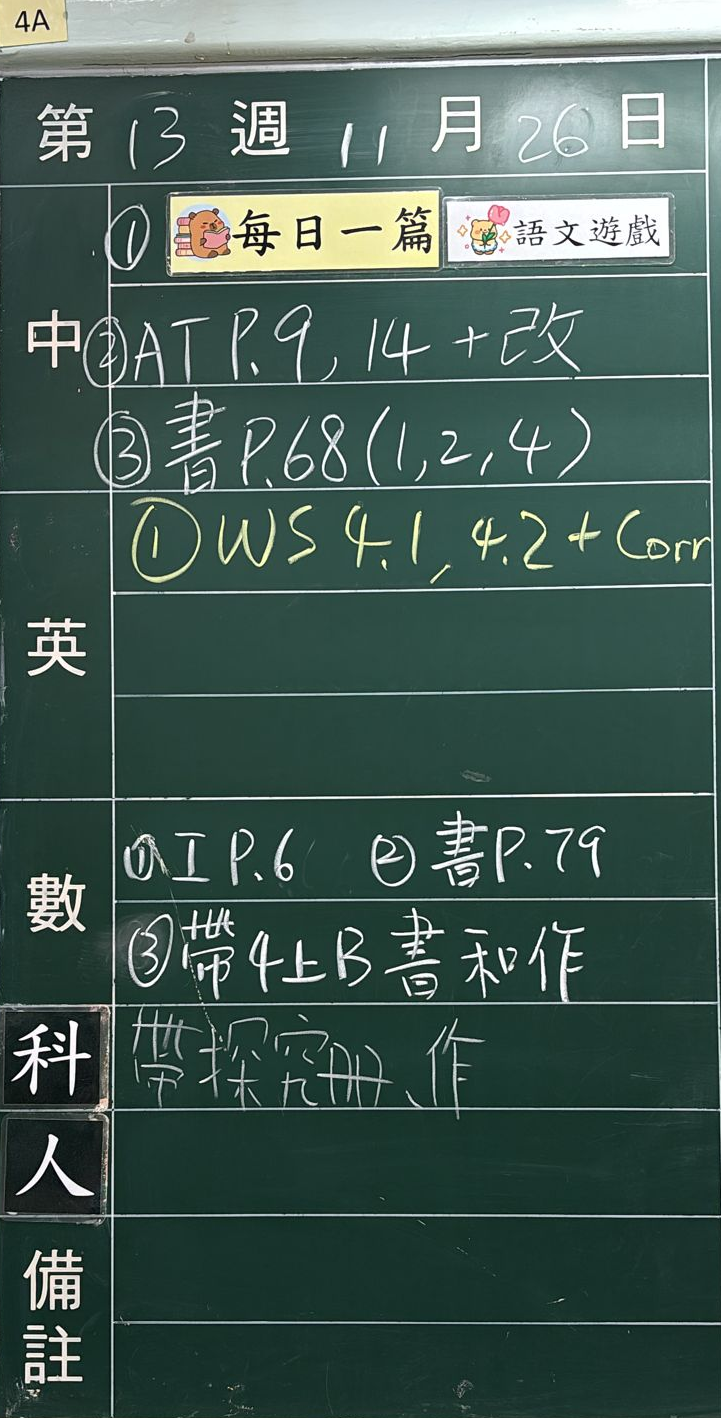 4A
第 13 週 11 月 26 日
中
① 每日一篇 語文遊戲
② A T P.9, 14 + 改
③ 書 P.68 (1, 2, 4)
英
① WS 4.1, 4.2 + Corr
數
① I P.6 ② 書 P.79
③ 帶 4上B 書 和 作
科
帶探究冊、作
人
備註